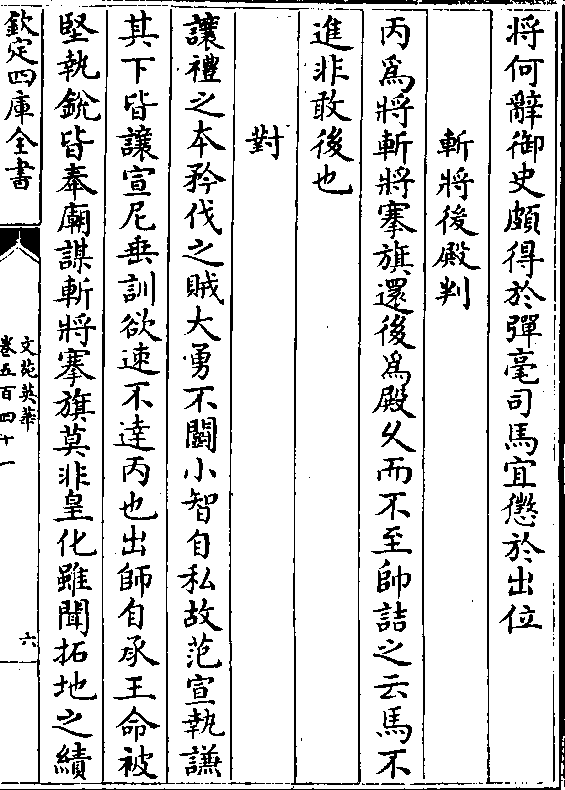 将何辭御史頗得於彈毫司馬宜懲於出位
斬將後殿判
丙為將斬將搴旗還後為殿久而不至帥詰之云馬不
進非敢後也
對
讓禮之本矜伐之賊大勇不鬬小智自私故范宣執謙
其下皆讓宣尼垂訓欲速不達丙也出師自承王命被
堅執銳皆奉廟謀斬將搴旗莫非皇化雖聞拓地之績
欽定四庫全書
文苑英華
卷五百四十一
六